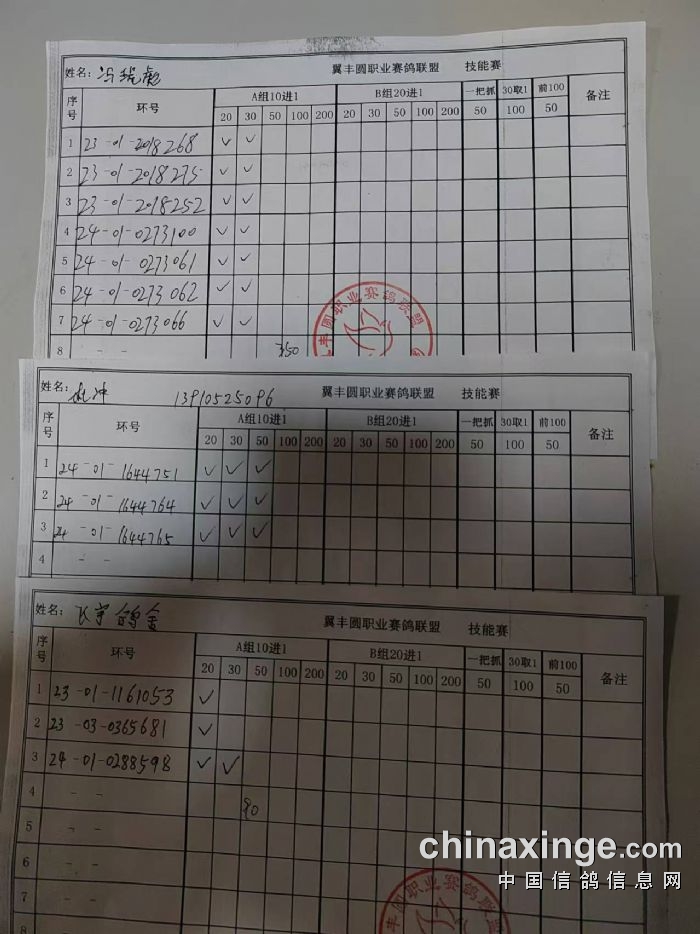 姓名：冯锐彪 翼丰圆职业赛鸽联盟 技能赛
序号 环号 A组10进1 B组20进1 一把抓 30取1 前100 备注
20 30 50 100 200 20 30 50 100 200 50 100 50
1 23-01-2018268 ✓ ✓
2 23-01-2018275 ✓ ✓
3 23-01-2018252 ✓ ✓
4 24-01-0273100 ✓ ✓
5 24-01-0273061 ✓ ✓
6 24-01-0273062 ✓ ✓
7 24-01-0273066 ✓ ✓
8 - - 350
丰圆职业赛鸽联盟
姓名： 冲 13910525096 翼丰圆职业赛鸽联盟 技能赛
序号 环号 A组10进1 B组20进1 一把抓 30取1 前100 备注
20 30 50 100 200 20 30 50 100 200 50 100 50
1 24-01-1644751 ✓ ✓ ✓
2 24-01-1644764 ✓ ✓ ✓
3 24-01-1644765 ✓ ✓ ✓
4 - -
姓名：飞宇鸽舍 翼丰圆职业赛鸽联盟 技能赛
序号 环号 A组10进1 B组20进1 一把抓 30取1 前100 备注
20 30 50 100 200 20 30 50 100 200 50 100 50
1 23-01-1161053 ✓
2 23-03-0365681 ✓
3 24-01-0288598 ✓ ✓
4 - - 90
5 - -
6 - -
7 - -
8 - -
圆职业赛鸽
chinaxinge.com
中国信鸽信息网